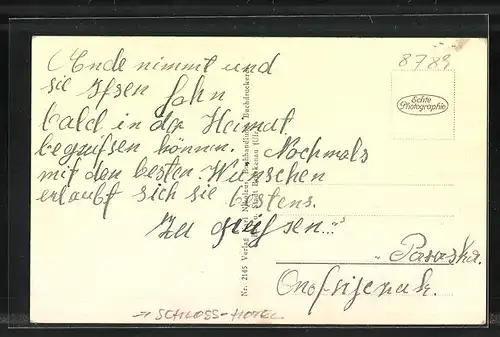 Ende nimmt und
sie Ihren Sohn
bald in der Heimat
begrüßen können. Nochmals
mit den besten Wünschen
erlaubt sich sie bestens
zu grüßen..."
8789
Echte
Photographie
Nr. 2145 Verlag Buchhandlung, Buchdruckerei
SCHLOSS-HOTEL